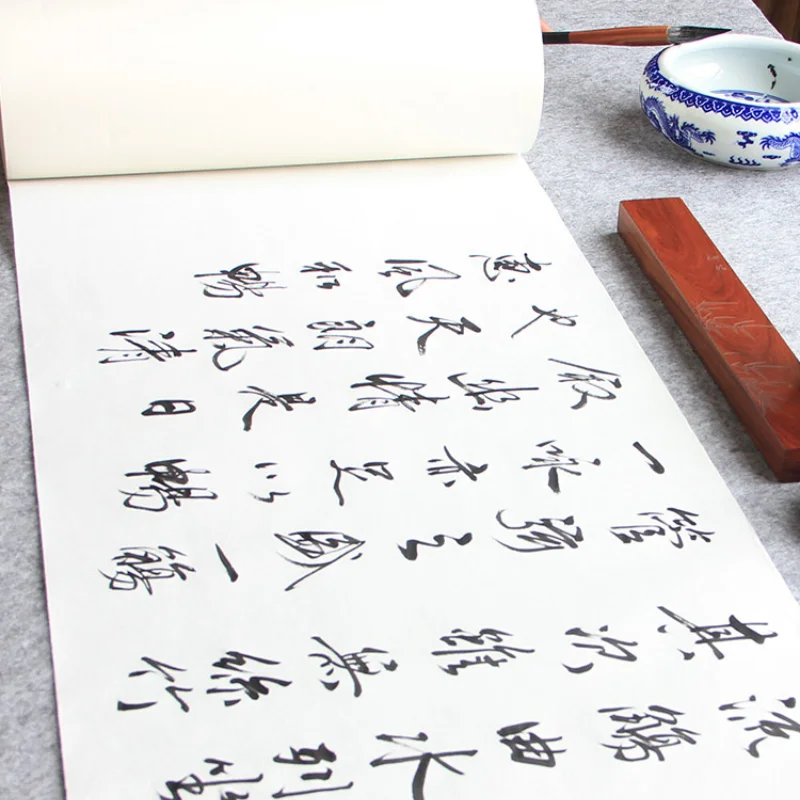 流觴曲水列坐
其次雖無絲竹
管弦之盛一觴
一詠亦足以暢
叙幽情是日
也天朗氣清
惠風和暢